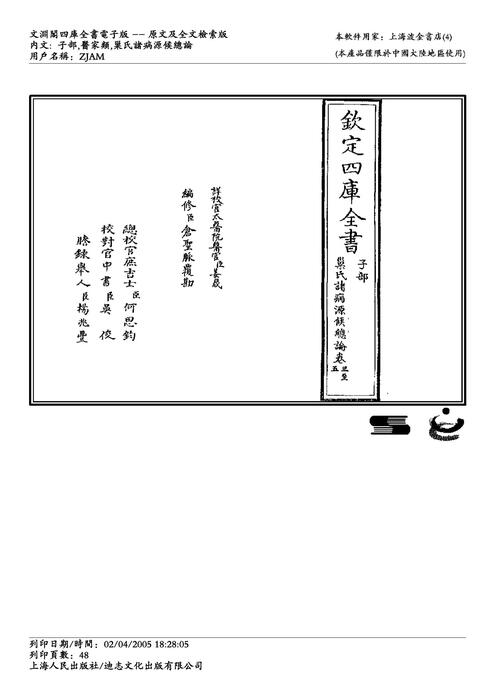 文淵閣四庫全書電子版 -- 原文及全文檢索版
內文: 子部,醫家類,巢氏諸病源候總論
用戶名稱: ZJAM
本軟件用家: 上海波金書店(4)
(本產品僅限於中國大陸地區使用)
欽定四庫全書
子部
巢氏諸病源候總論卷三至五
詳校官太醫院醫官臣姜晟
編修臣倉聖脈覆勘
總校官庶吉士臣何思鈞
校對官中書臣吳俊
謄錄舉人臣楊兆豐
列印日期/時間: 02/04/2005 18:28:05
列印頁數: 48
上海人民出版社/迪志文化出版有限公司